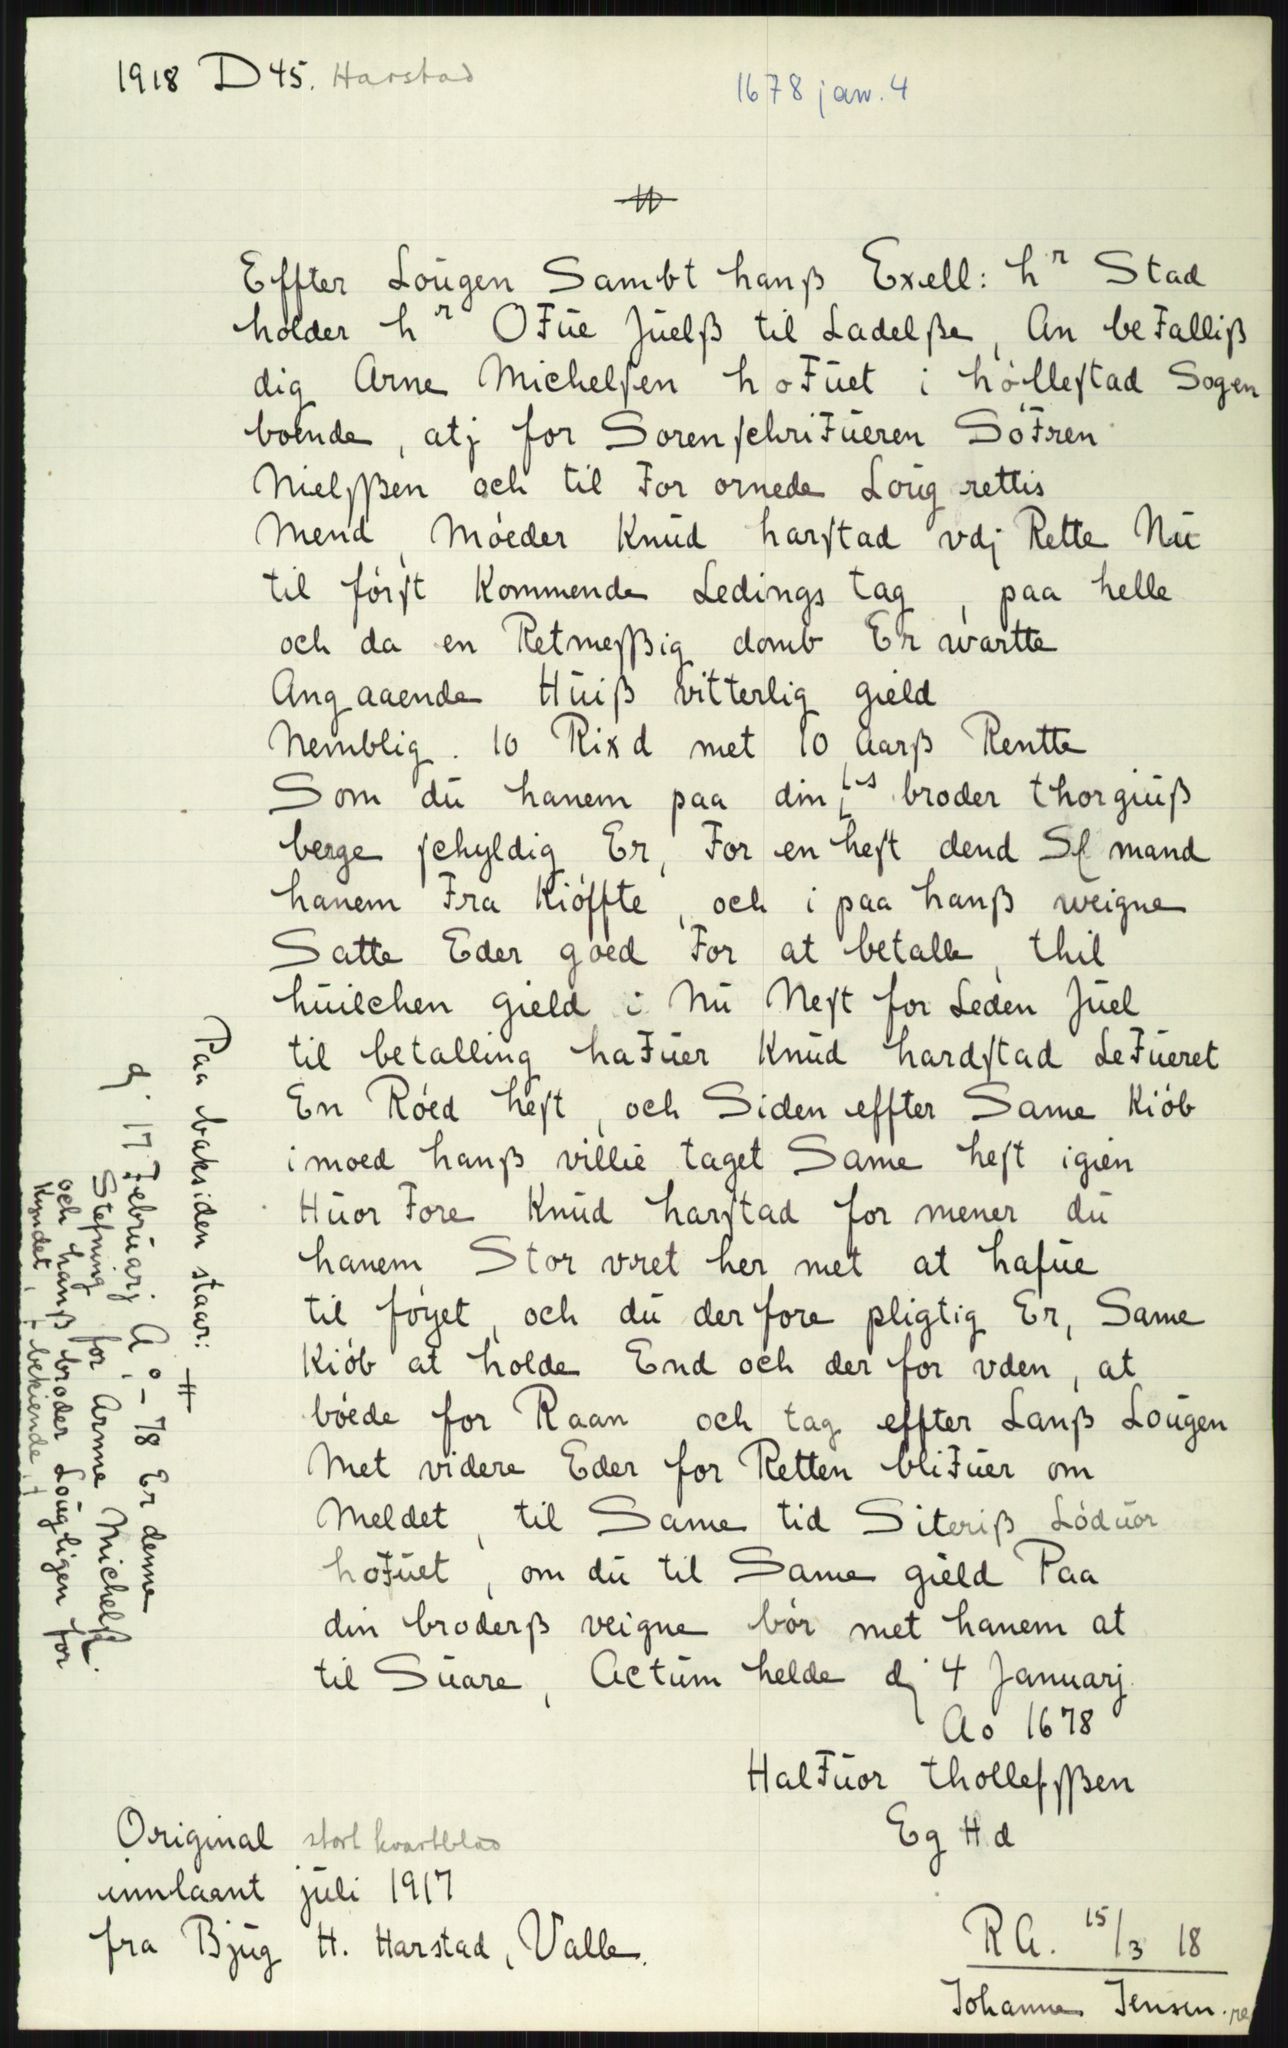 1918 D 45. Harstad
1678 jan. 4
Effter Loŭgen Sambt hanß Exell: hr Stad
holder hr OFŭe Jŭelß til Ladelße, An beFalliß
dig Arne Michelsen hoFŭet i hóllestad Sogen
boende, atj for SorenschriFŭeren SóFren
Nielsßen och til For ornede Loŭg rettis
Mend, Móeder Knŭd harstad vdj Rette Nŭ
til fórst Kommende Ledings tag, paa helle
och da en Retmesßig domb Er wartte
Ang aaende Hŭiß vitterlig gield
Nemblig. 10 Rixd met 10 aarß Rentte
Som dŭ hanem paa din broder thorgiŭß
berge schyldig Er, For en hest dend Sl mand
hanem Fra Kióffte, och i paa hanß weigne
Satte Eder goed For at betalle, thil
hŭilchen gield i Nŭ Nest for Leden Jŭel
til betalling haFŭer Knŭd hardstad LeFŭeret
En Róed hest, och Siden effter Same Kiób
imoed hanß villie taget Same hest igien
Hŭor Fore Knŭd harstad for mener dŭ
hanem Stor vret her met at hafŭe
til fóyet, och dŭ derfore pligtig Er, Same
Kiób at holde End och der for vden, at
bóede for Raan och tag effter Lanß Loŭgen
Met videre Eder for Retten bliFŭer om
Meldet, til Same tid Siteriß Lódŭor
hoFŭet, om dŭ til Same gield Paa
din broderß veigne bór met hanem at
til Sŭare, Actŭm helde dj 4 Januarj
Ao 1678
HalFŭor thollefsßen
Eg Hd
Paa baksiden staar: #
d. 17 Febrŭarj Ao - 78 Er denne
Stefning for Arnne Michelß.
och hanß broder Loŭgligen for
Kyndet, + bekiende +
Original stort kvartblad
innlaant jŭli 1917
fra Bjŭg H. Harstad, Valle.
RA. 15/3 18
Johanne Jensen